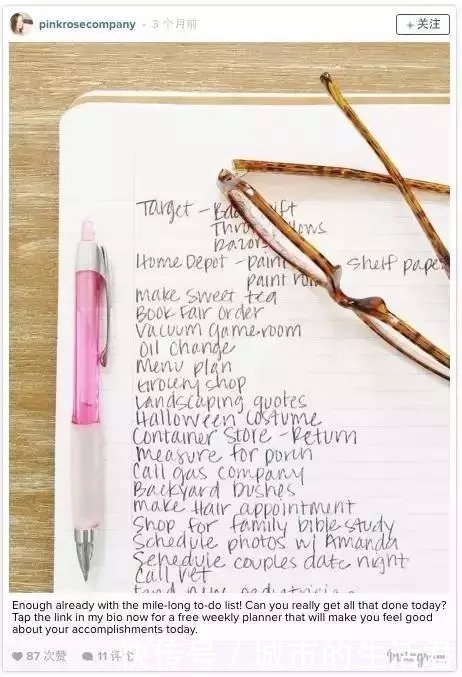 pinkrosecompany · 3 个月前
+ 关注
Target -
Throw
razors
Home Depot - paint shelf paper
paint
make sweet tea
Book Fair order
Vacuum gameroom
Oil change
Menu plan
Grocery shop
Landscaping quotes
Halloween costume
Container Store - Return
measure for porch
Call gas company
Backyard bushes
make Hair appointment
Shop for family bible study
Schedule photos w/ Amanda
Schedule couples date night
Call vet
Enough already with the mile-long to-do list! Can you really get all that done today?
Tap the link in my bio now for a free weekly planner that will make you feel good
about your accomplishments today.
87 次赞 11 评
快传号 / 城市的生活君
Instagram